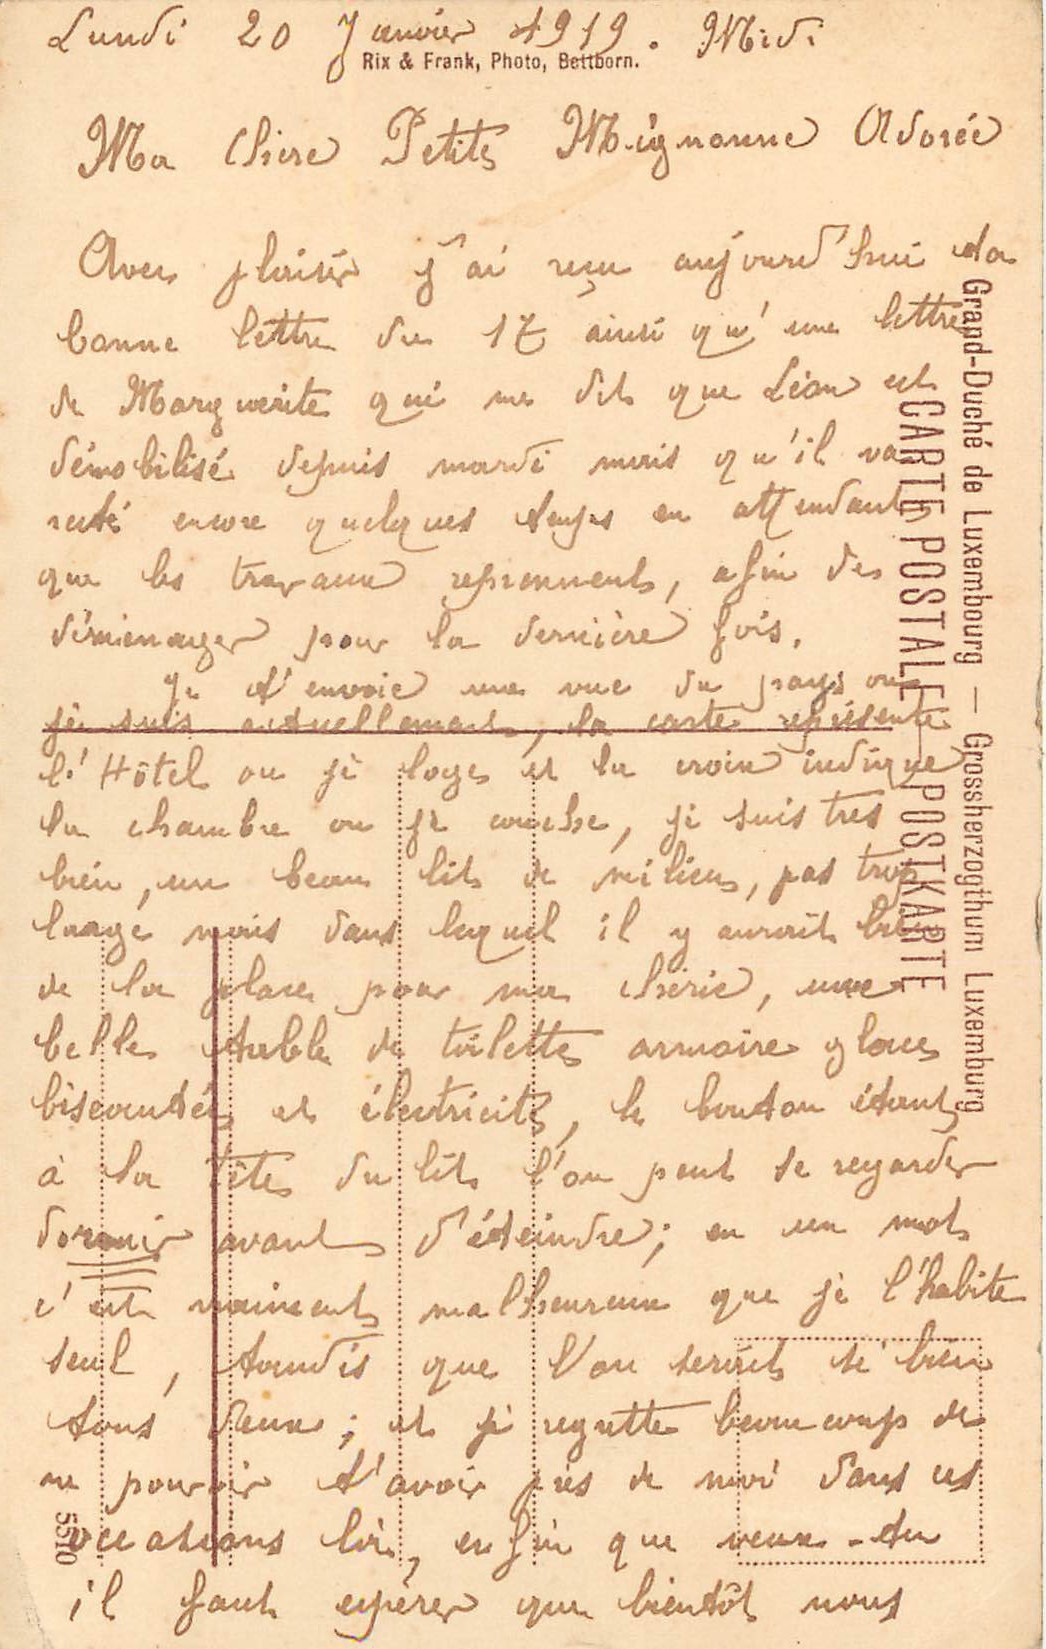 Lundi 20 Janvier 1919. Midi
Rix & Frank, Photo, Bettborn.
Ma Chère Petite Mignonne Adorée
Avec plaisir j'ai reçu aujourd'hui ta
bonne lettre du 17 ainsi qu'une lettre
de Marguerite qui me dit que Léon est
démobilisé depuis mardi mais qu'il va
resté encore quelques temps en attendant
que les travaux reprennent, afin de
déménager pour la dernière fois.
Je t'envoie une vue du pays ou
je suis actuellement, la carte représente
l'Hôtel ou je loge et la croix indique
la chambre ou je couche, je suis très
bien, un beau lit de milieu, pas trop
large mais dans lequel il y aurait bien
de la place pour ma chérie, une
belle table de toilette armoire glace
biseautée et électricité, le bouton étant
à la tête du lit l'on peut se regarder
dormir avant d'éteindre; en un mot
c'est vraiment malheureux que je l'habite
seul, tandis que l'on serait si bien
tous deux; et je regrette beaucoup de
ne pouvoir t'avoir près de moi dans ces
occasions là, enfin que veux-tu
il faut espérer que bientôt nous
Grand-Duché de Luxembourg — Grossherzogthum Luxemburg
CARTE POSTALE — POSTKARTE
5510